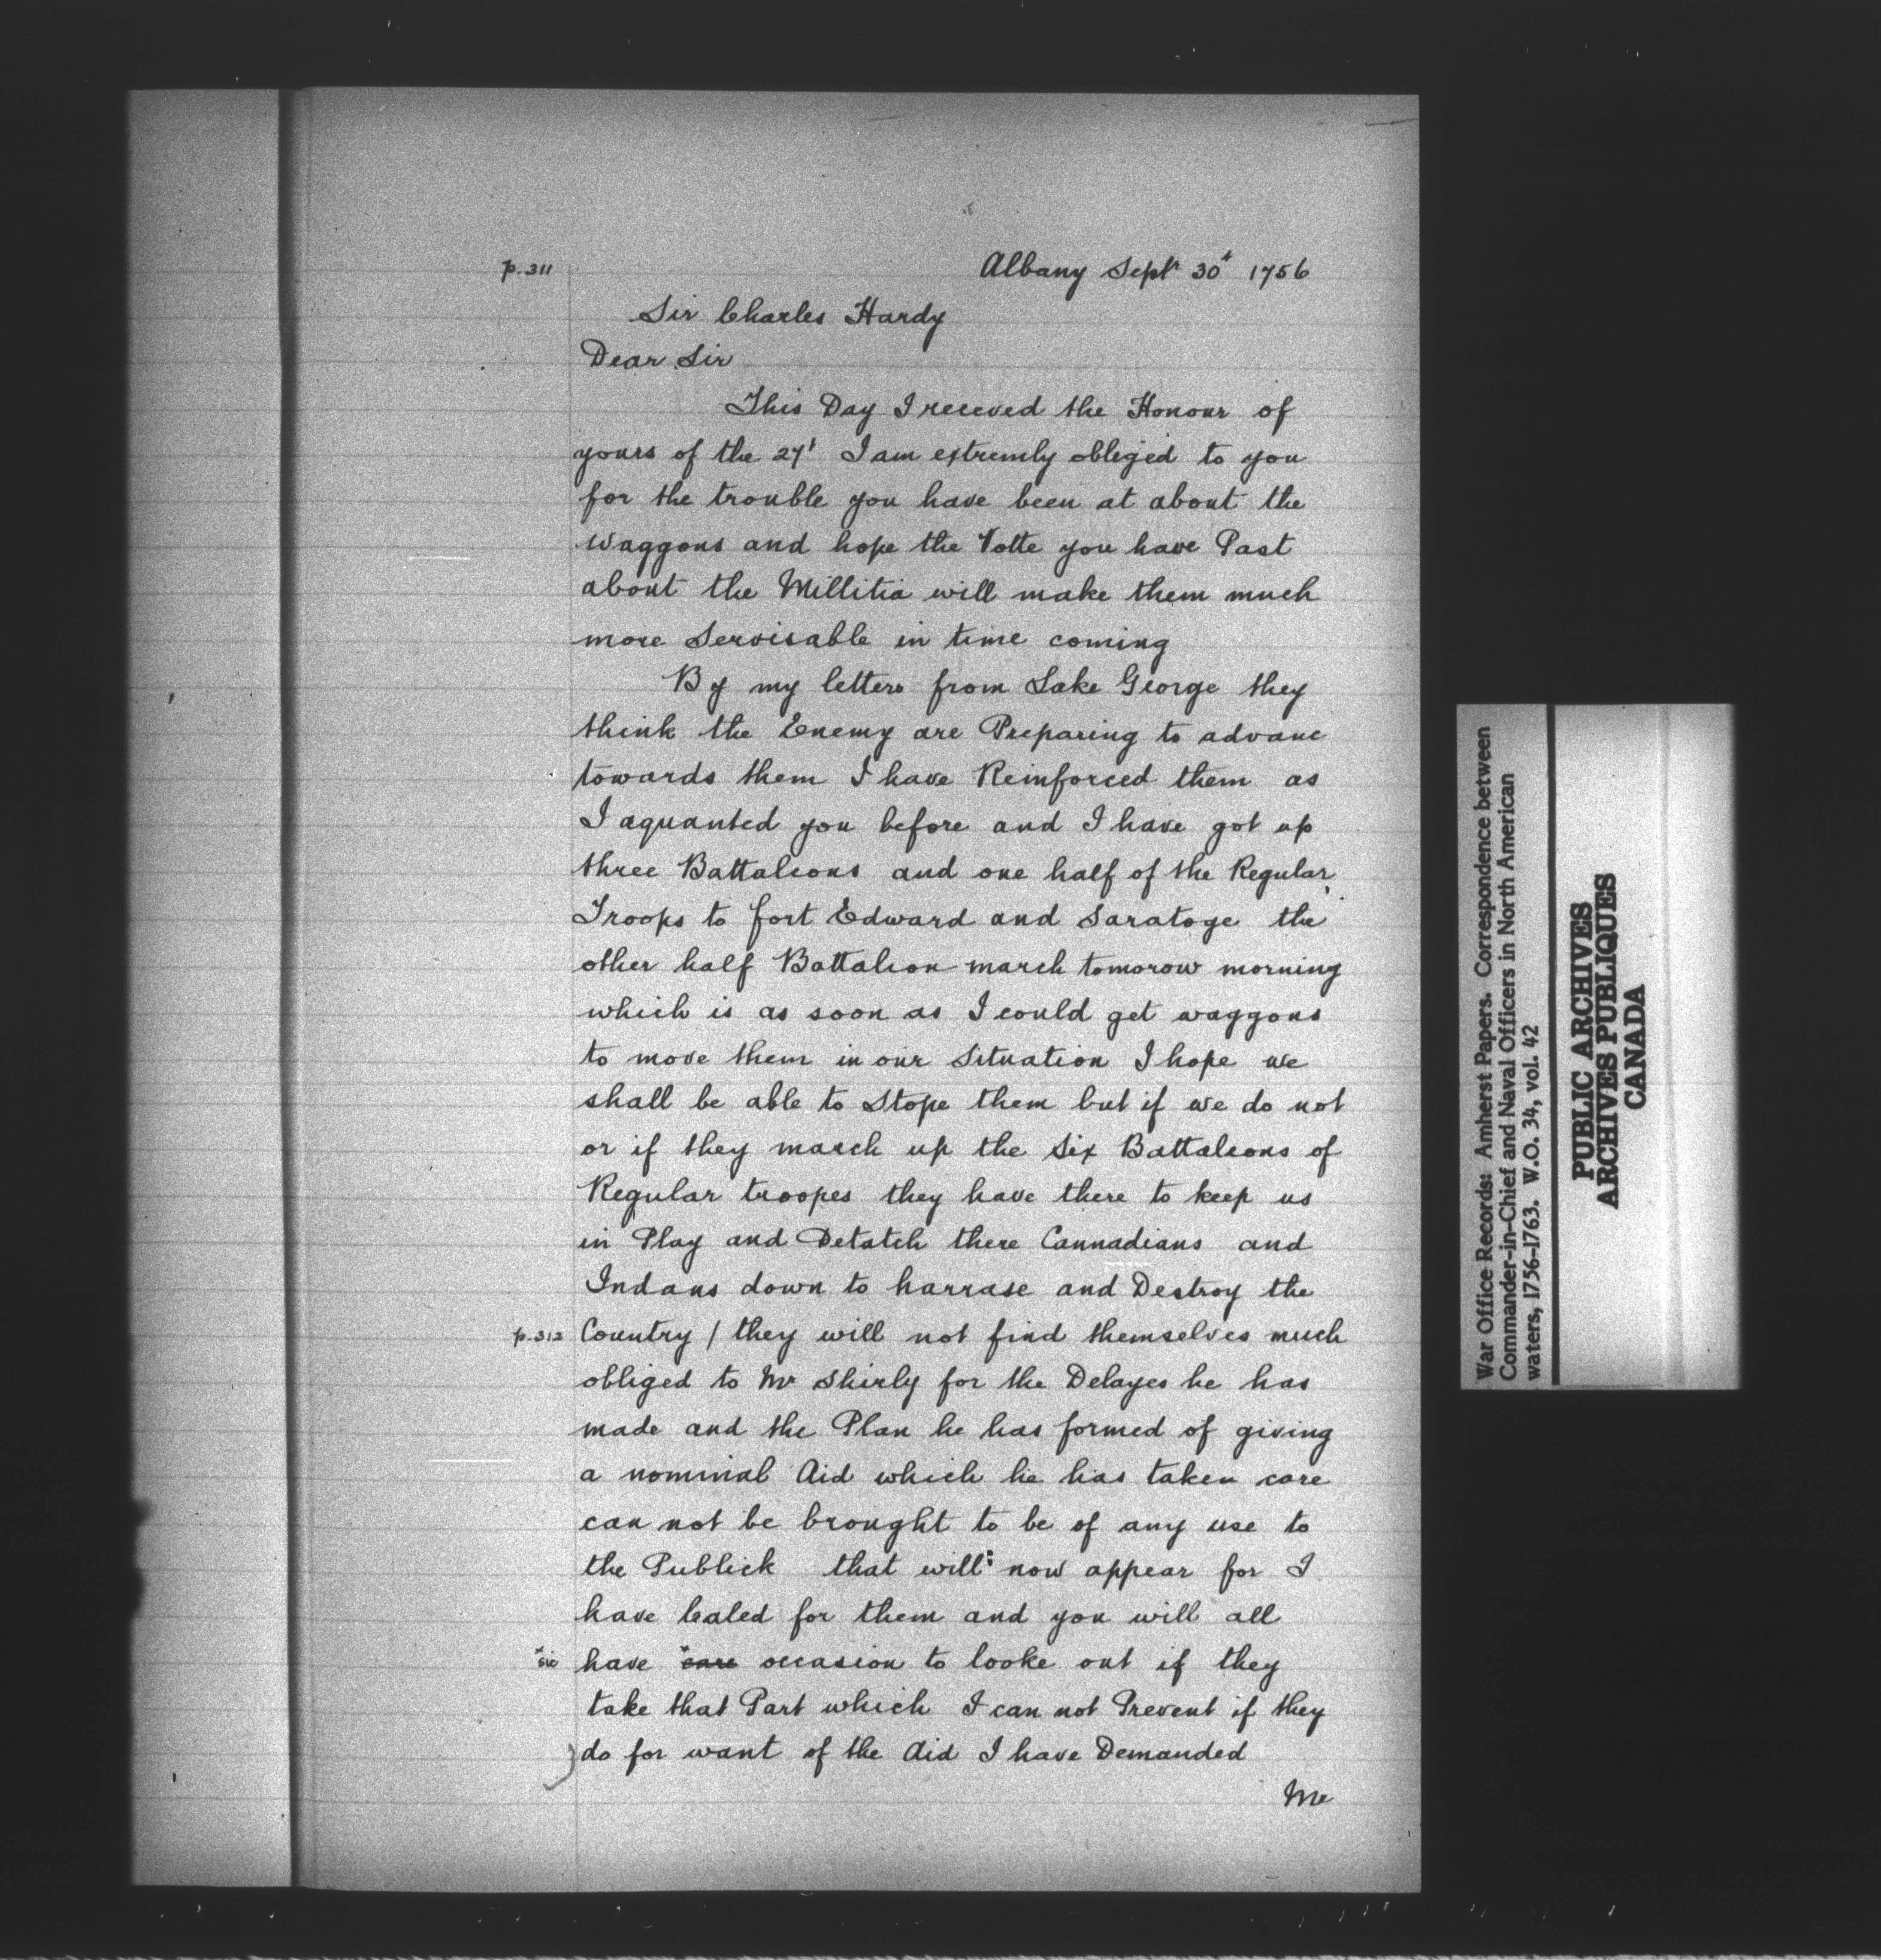 p. 311
Albany Septr 30t 1756
Sir Charles Hardy
Dear Sir
This Day I receved the Honour of
yours of the 27t I am extremly obleged to you
for the trouble you have been at about the
Waggons and hope the Votte you have Past
about the Millitia will make them much
more Servisable in time coming
By my letters from Lake George they
think the Enemy are Preparing to advanc
towards them I have Reinforced them as
I aquanted you before and I have got up
three Battaleons and one half of the Regular
Troops to fort Edward and Saratoge the
other half Battaleon march tomorow morning
which is as soon as I could get waggons
to move them in our Situation I hope we
shall be able to Stope them but if we do not
or if they march up the Six Battaleons of
Regular troopes they have there to keep us
in Play and Detatch there Cannadians and
Indans down to harrase and Destroy the
p. 312 Country / they will not find themselves much
obliged to Mr Shirly for the Delayes he has
made and the Plan he has formed of giving
a nominal Aid which he has taken care
can not be brought to be of any use to
the Publick that will: now appear for I
have Caled for them and you will all
*sic have *care occasion to looke out if they
take that Part which I can not Prevent if they
do for want of the Aid I have Demanded
Mr
War Office Records: Amherst Papers. Correspondence between
Commander-in-Chief and Naval Officers in North American
waters, 1756-1763. W.O. 34, vol. 42
PUBLIC ARCHIVES
ARCHIVES PUBLIQUES
CANADA